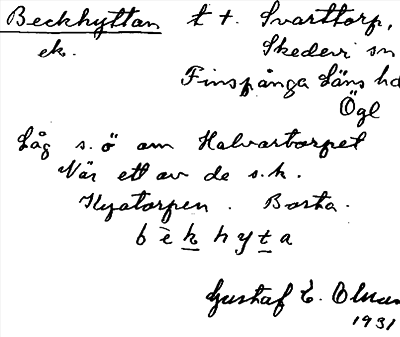 Beckhyttan t t. Svarttorp,
ek. Skedevi sn
Finspånga Läns hd
Ögl
Låg s. ö om Halvartorpet
Var ett av de s.k.
Nyatorpen. Borta.
b e k h y t a
Gustaf E. Olsson
1931